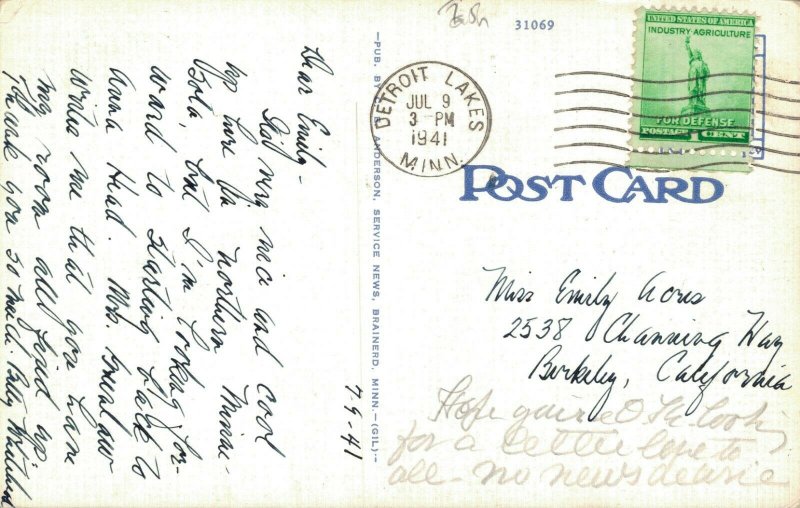 31069
UNITED STATES OF AMERICA
INDUSTRY-AGRICULTURE
FOR DEFENSE
POSTAGE 1 CENT
DETROIT LAKES
JUL 9
3-PM
1941
MINN.
POST CARD
Dear Emily-
It's very nice and cool
up here in northern Minne-
sota, but I'm looking for-
ward to starting back to
Anna Head. Mrs.
writes me that you have
my room all fixed up.
Thank you so much Patty
7-9-41
—PUB. BY ANDERSON, SERVICE NEWS, BRAINERD, MINN.—(GIL)—
Miss Emily Acres
2538 Channing Way
Berkeley, California
Hope you're O.K. look
for a letter love to
all - no news dearie